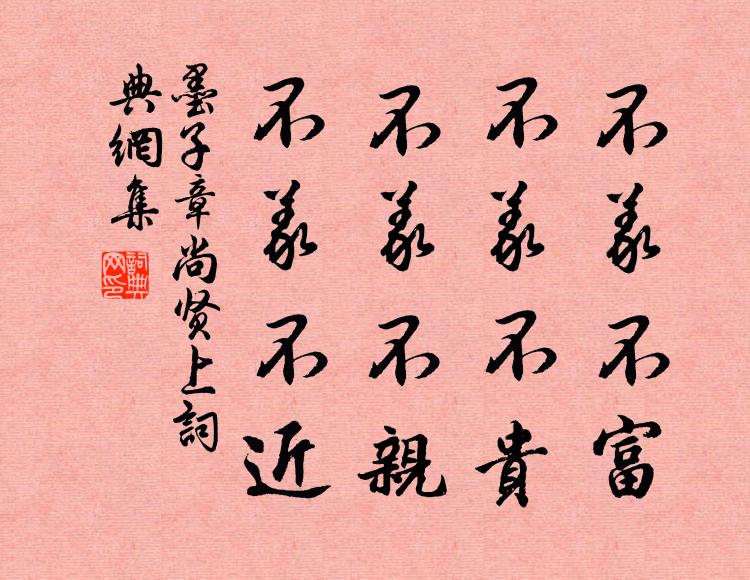 不義不富
不義不貴
不義不親
不義不近
墨子章尚贤上詞
典網集
詞典
网印